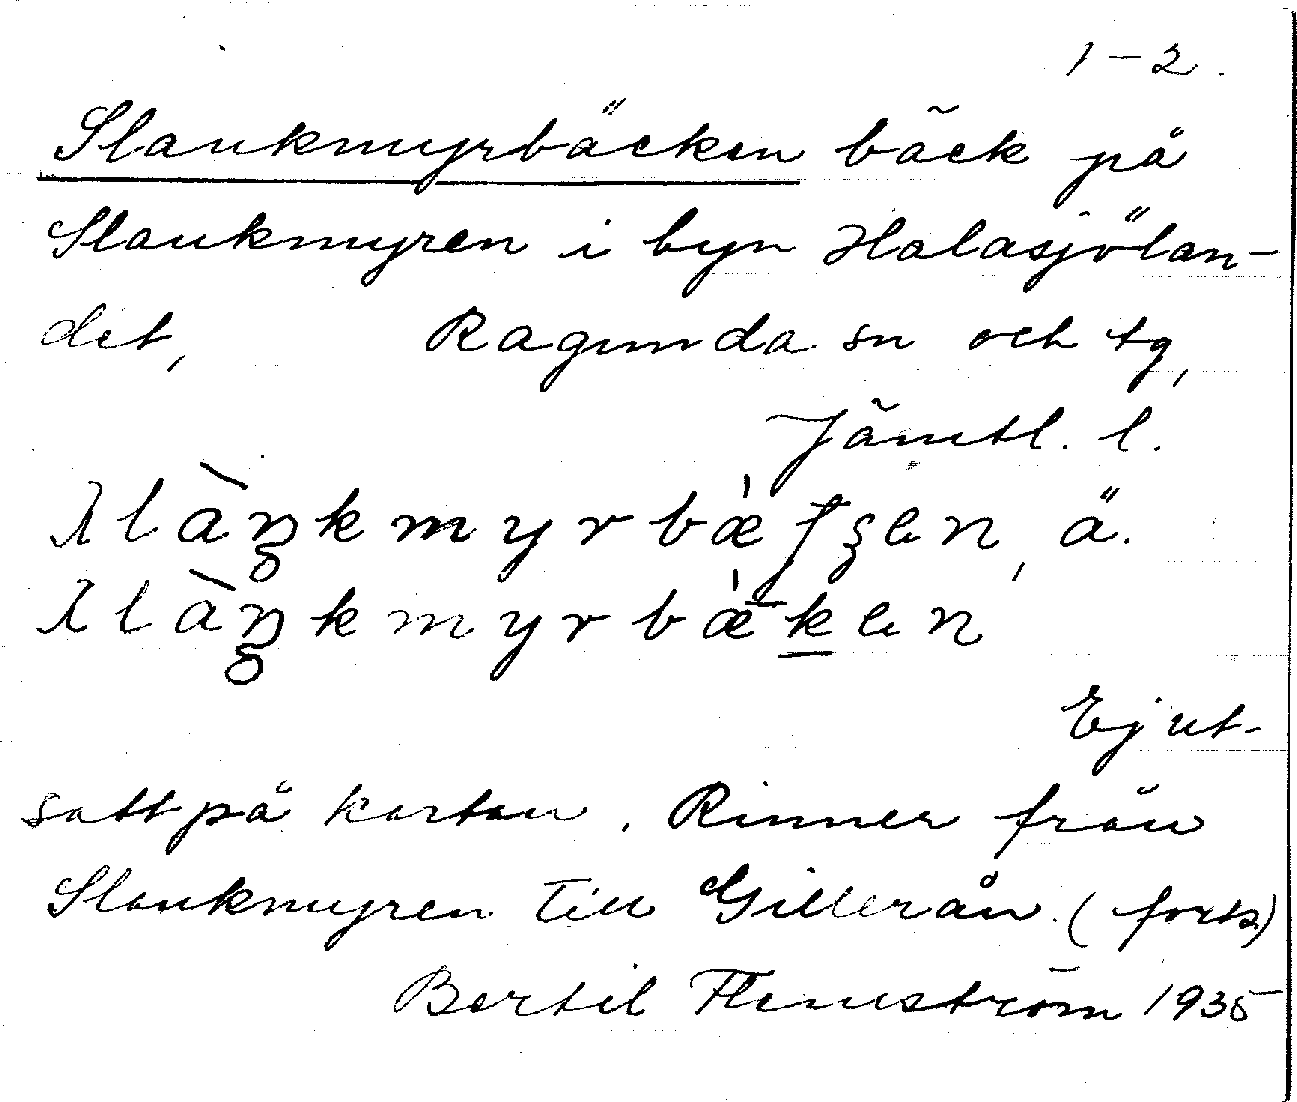 1-2.
Slankmyrbäcken bäck på
Slankmyren i byn Halasjölan-
det, Ragunda sn och tg,
Jämtl. l.
ä.
Ej ut-
satt på kartan. Rinner från
Slankmyren till Gillerån. (forts)
Bertil Flemström 1935